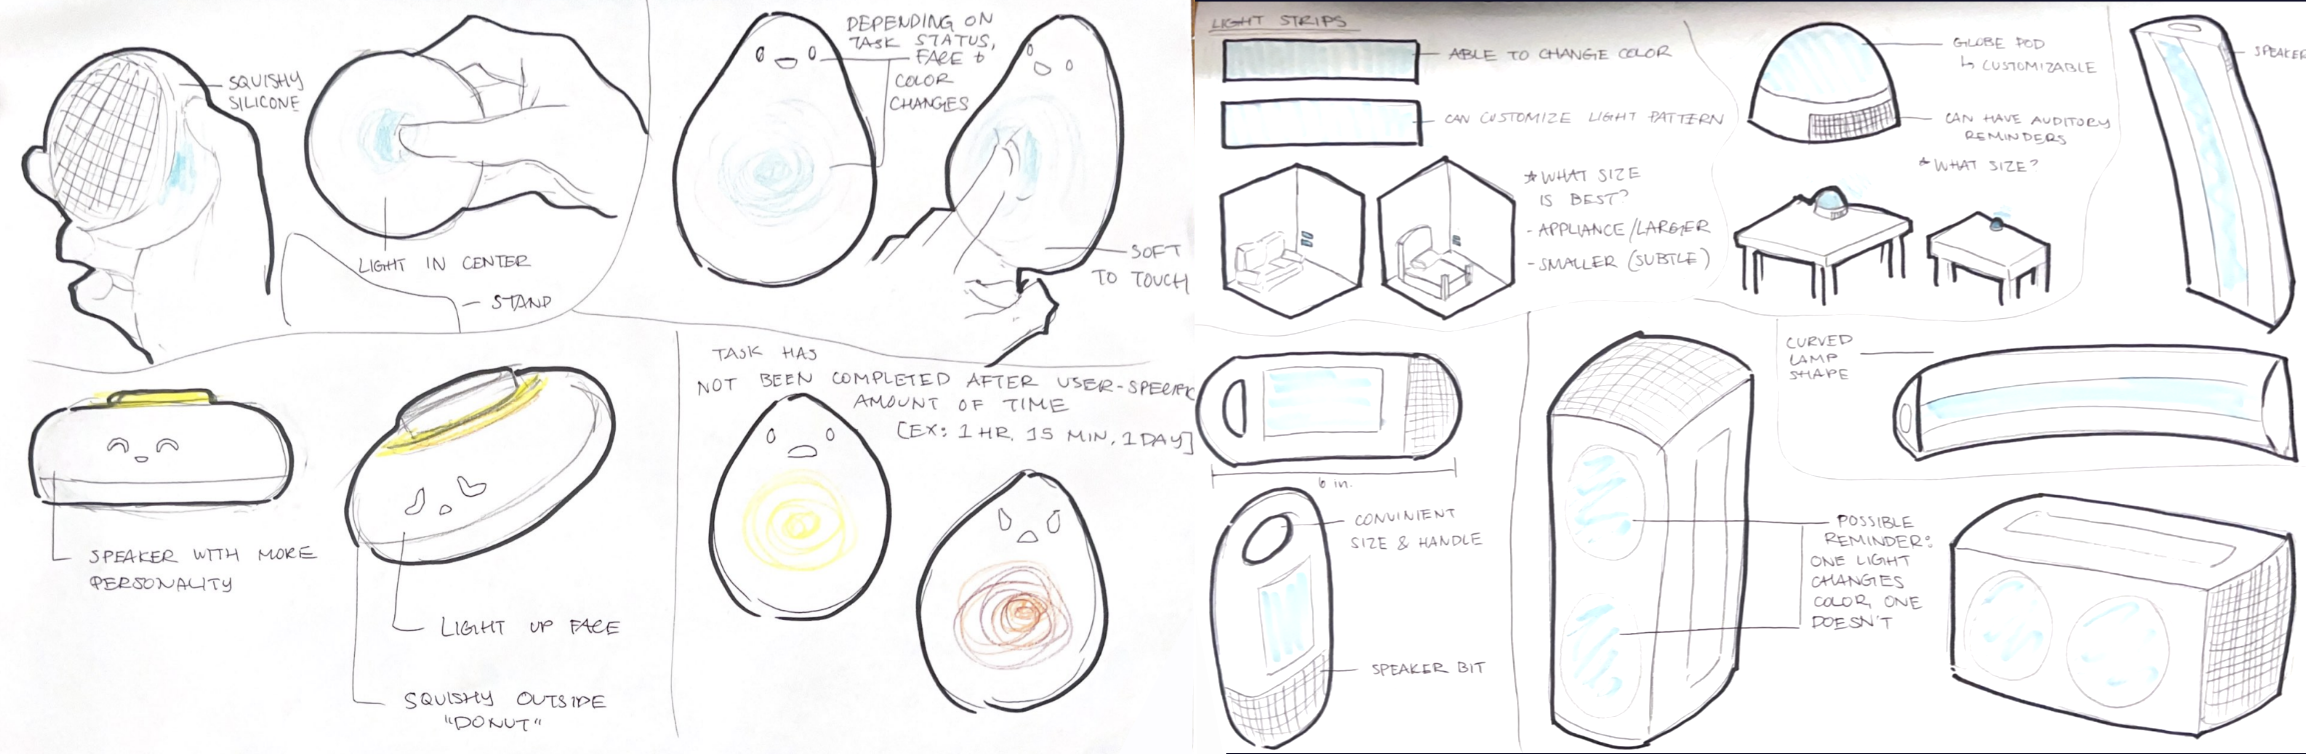 SQUISHY
SILICONE
LIGHT IN CENTER
STAND
DEPENDING ON
TASK STATUS,
FACE &
COLOR
CHANGES
SOFT
TO TOUCH
SPEAKER WITH MORE
PERSONALITY
LIGHT UP FACE
SQUISHY OUTSIDE
"DONUT"
TASK HAS
NOT BEEN COMPLETED AFTER USER-SPECIFIC
AMOUNT OF TIME
[EX: 1 HR, 15 MIN, 1 DAY]
LIGHT STRIPS
ABLE TO CHANGE COLOR
CAN CUSTOMIZE LIGHT PATTERN
* WHAT SIZE
IS BEST?
- APPLIANCE/LARGER
- SMALLER (SUBTLE)
GLOBE POD
↳ CUSTOMIZABLE
CAN HAVE AUDITORY
REMINDERS
* WHAT SIZE?
SPEAKER
6 in.
CONVINIENT
SIZE & HANDLE
SPEAKER BIT
CURVED
LAMP
SHAPE
POSSIBLE
REMINDER:
ONE LIGHT
CHANGES
COLOR, ONE
DOESN'T